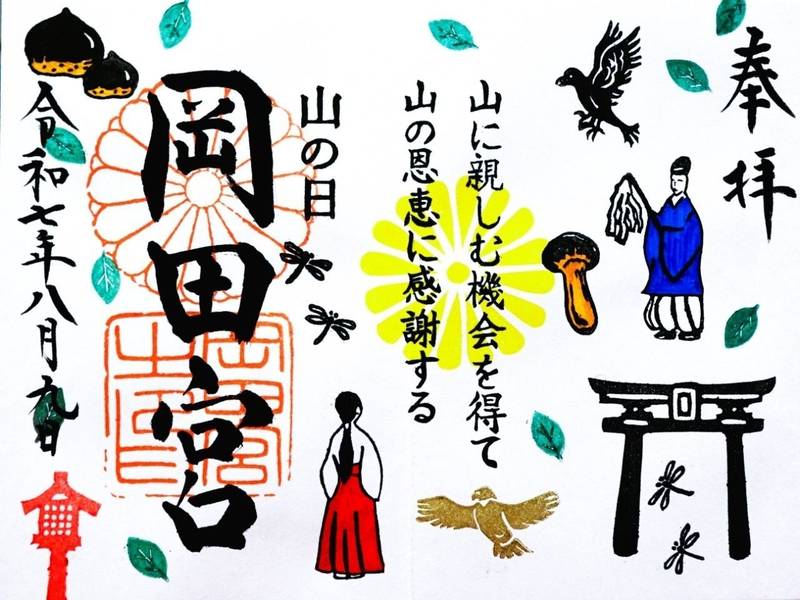 奉拝
山に親しむ機会を得て
山の恩恵に感謝する
山の日
岡田宮
令和七年八月九日